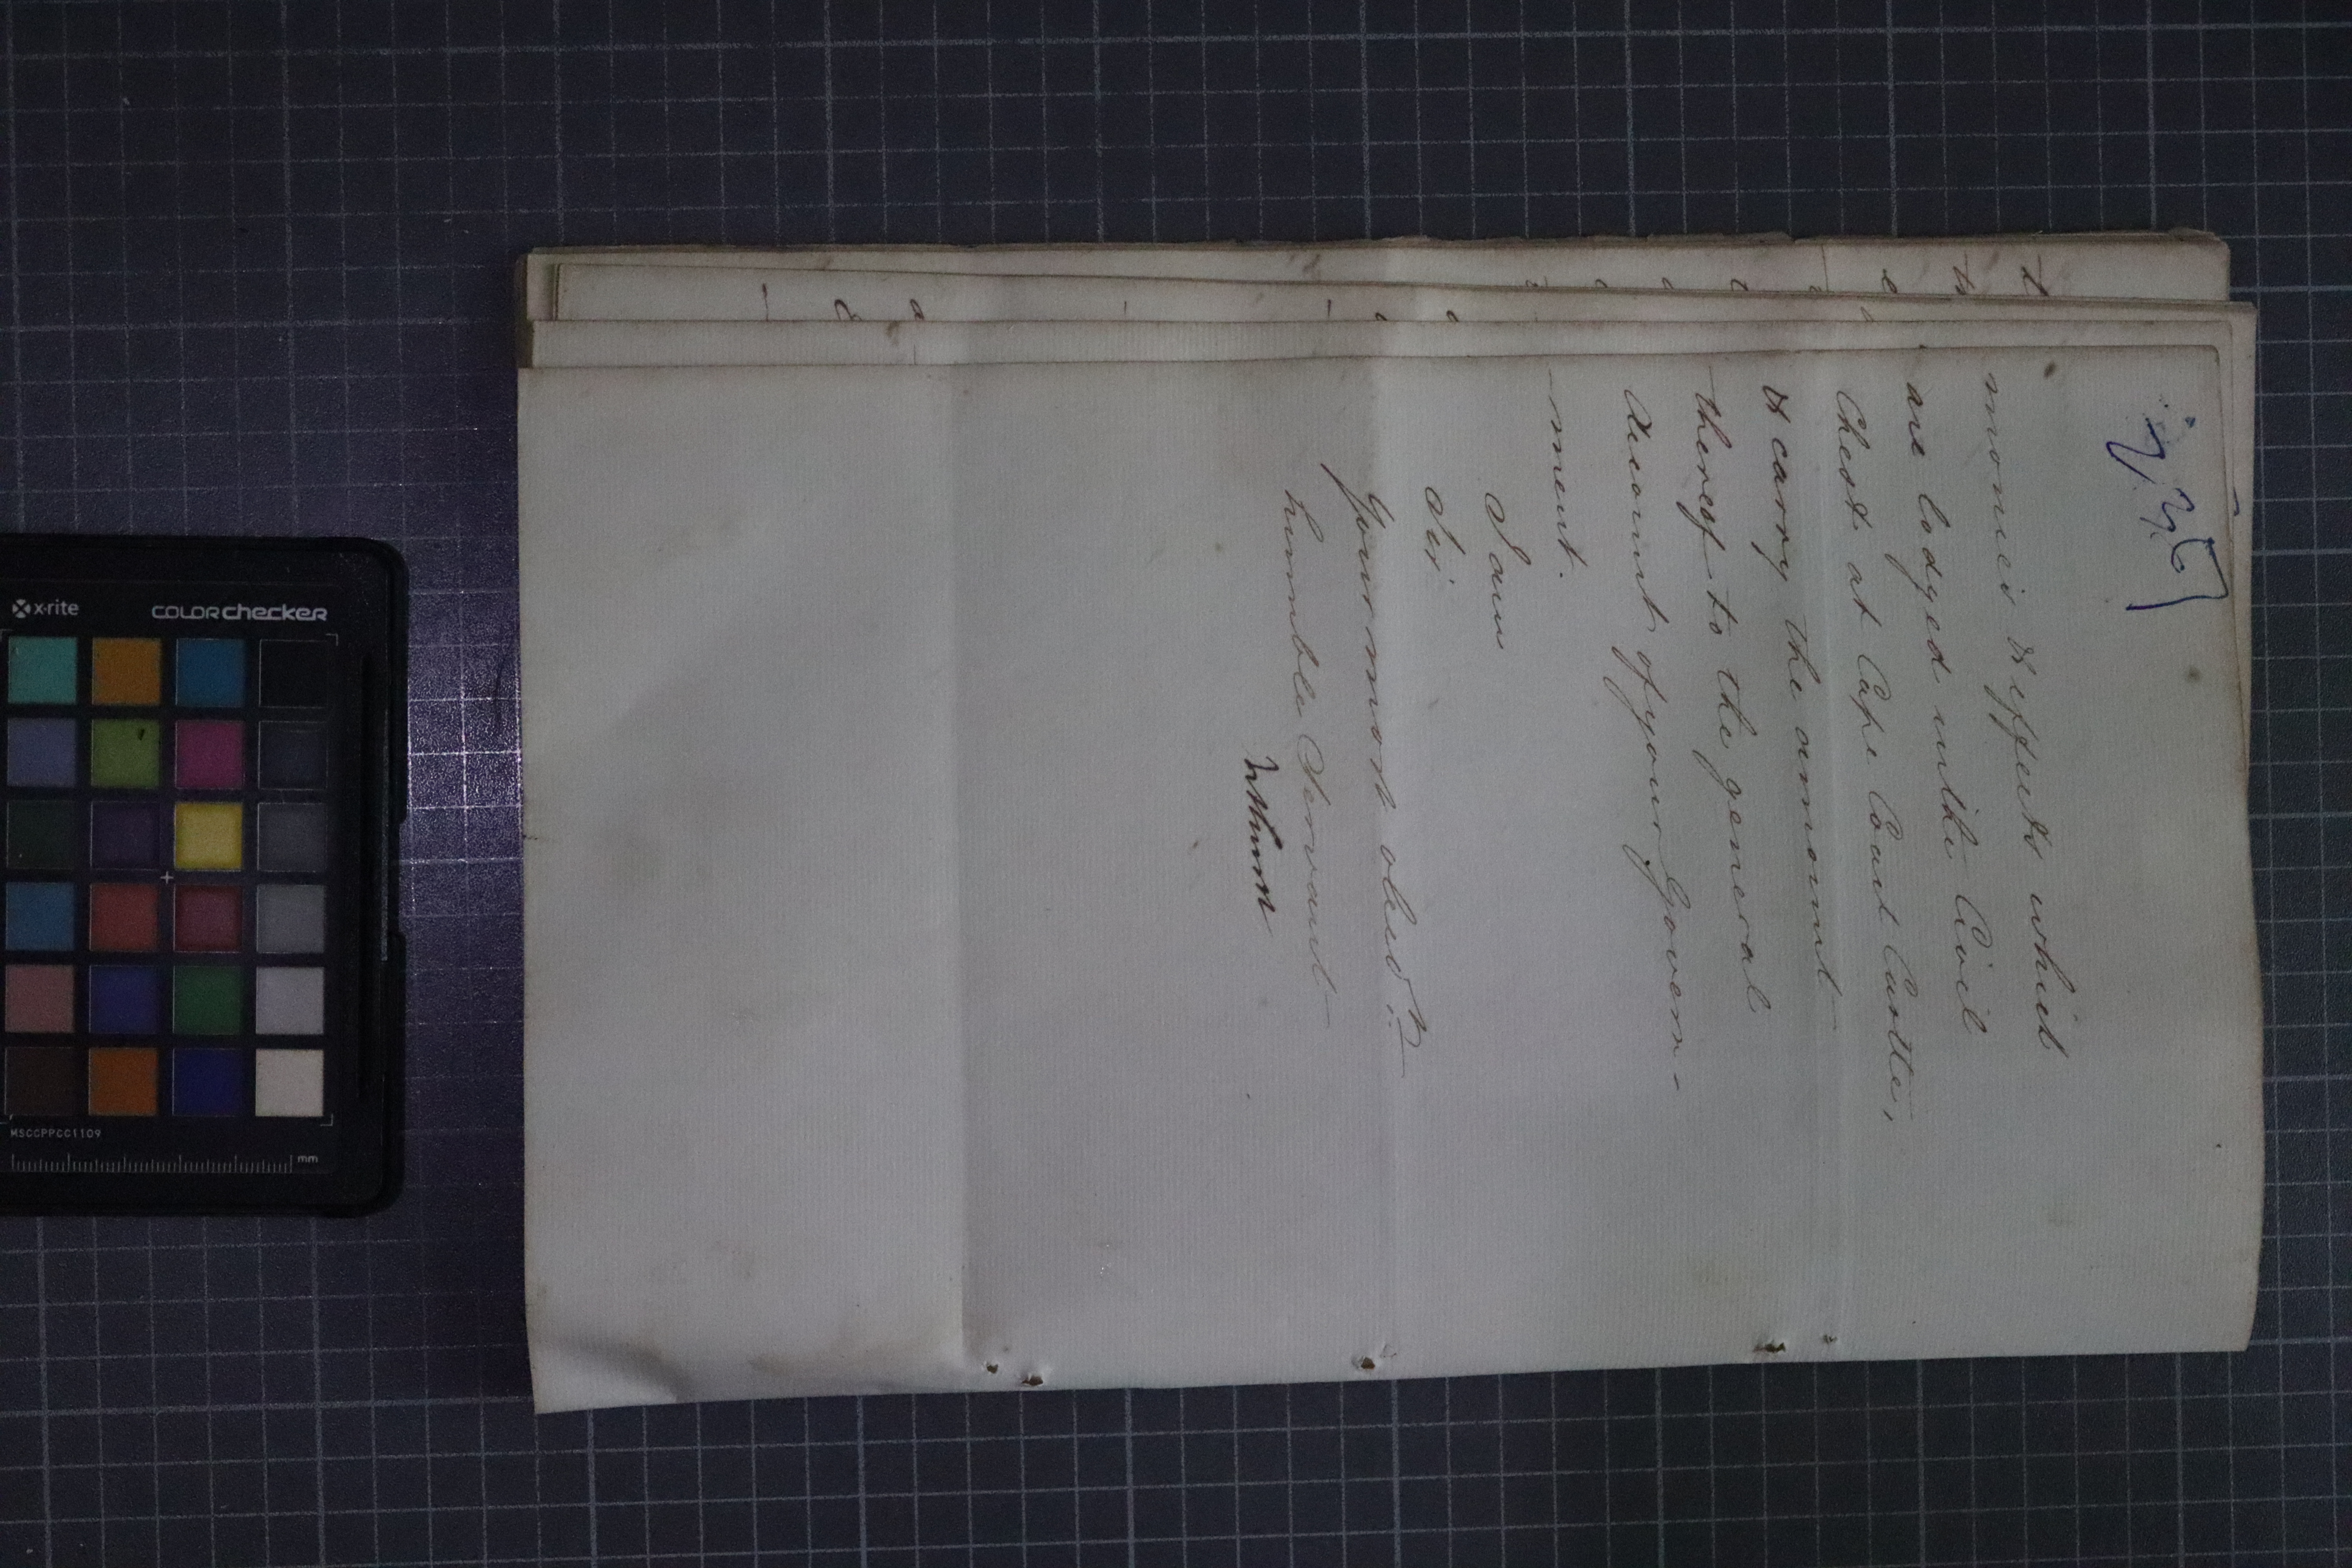 monies & effects which
are lodged in the Civil
Chest at Cape Coast Castle,
& carry the amount
thereof to the general
Account of your Govern-
-ment.
I am
Sir
Your most obed.t
humble Servant
x-rite
COLORchecker
MSCCPPCC1109
mm